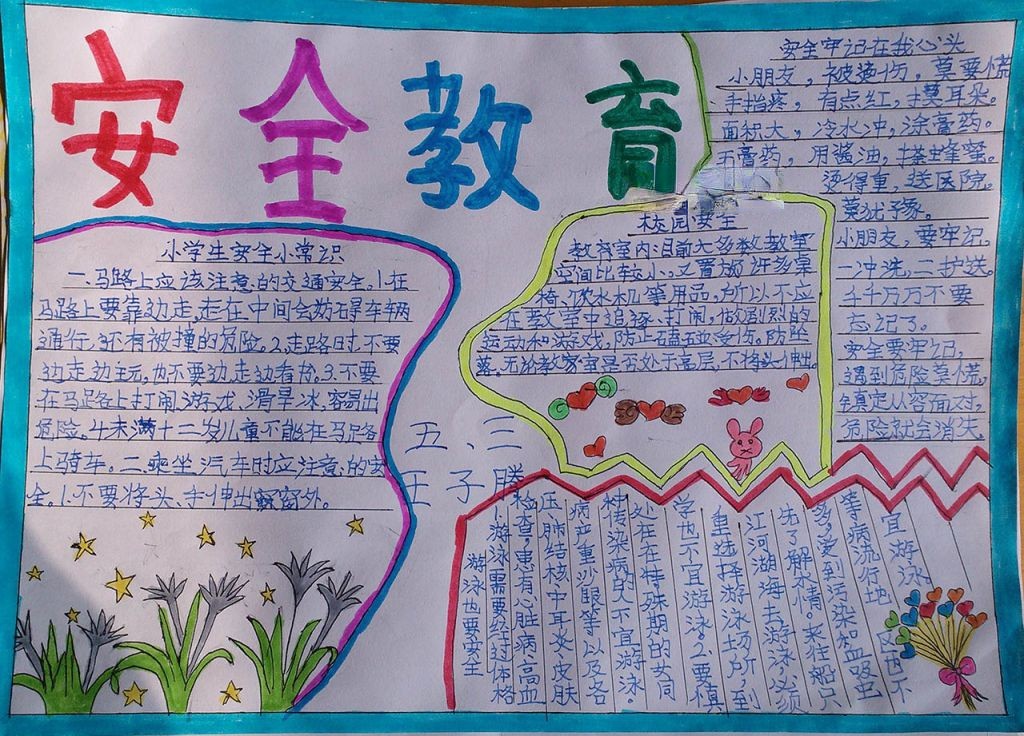 安全教育
小学生安全小常识
一、马路上应该注意的交通安全。1.在
马路上要靠边走,走在中间会妨碍车辆
通行,还有被撞的危险。2.走路时不要
边走边玩,也不要边走边看书。3.不要
在马路上打闹、游戏、滑旱冰,容易出
危险。4.未满十二岁儿童不能在马路
上骑车。二、乘坐汽车时应注意的安
全。1.不要将头、手伸出窗外。
五、三
王子腾
校园安全
教育室内:目前大多数教室
空间比较小,又置放许多桌
椅、饮水机等用品,所以不应
在教室中追逐、打闹,做剧烈的
运动和游戏,防止磕碰受伤,防坠
落,无论教室是否处于高层,不将头伸出
安全牢记在我心头
小朋友,被烫伤,莫要慌
手指疼,有点红,摸耳朵。
面积大,冷水冲,涂膏药。
无膏药,用酱油,搽蜂蜜。
烫得重,送医院。
莫犹豫。
小朋友,要牢记,
一冲洗,二护送。
千千万万不要
忘记了。
安全要牢记,
遇到危险莫慌,
镇定从容面对,
危险就会消失。
游泳也要安全
1.游泳需要经过体格
检查。患有心脏病、高血
压、肺结核、中耳炎、皮肤
病、严重沙眼等以及各
种传染病的人不宜游泳。
处在在特殊期的女同
学也不宜游泳。2.要慎
重选择游泳场所,到
江河湖海去游泳,必须
先了解水情。来往船只
多,受到污染和血吸虫
等病流行地区也不
宜游泳